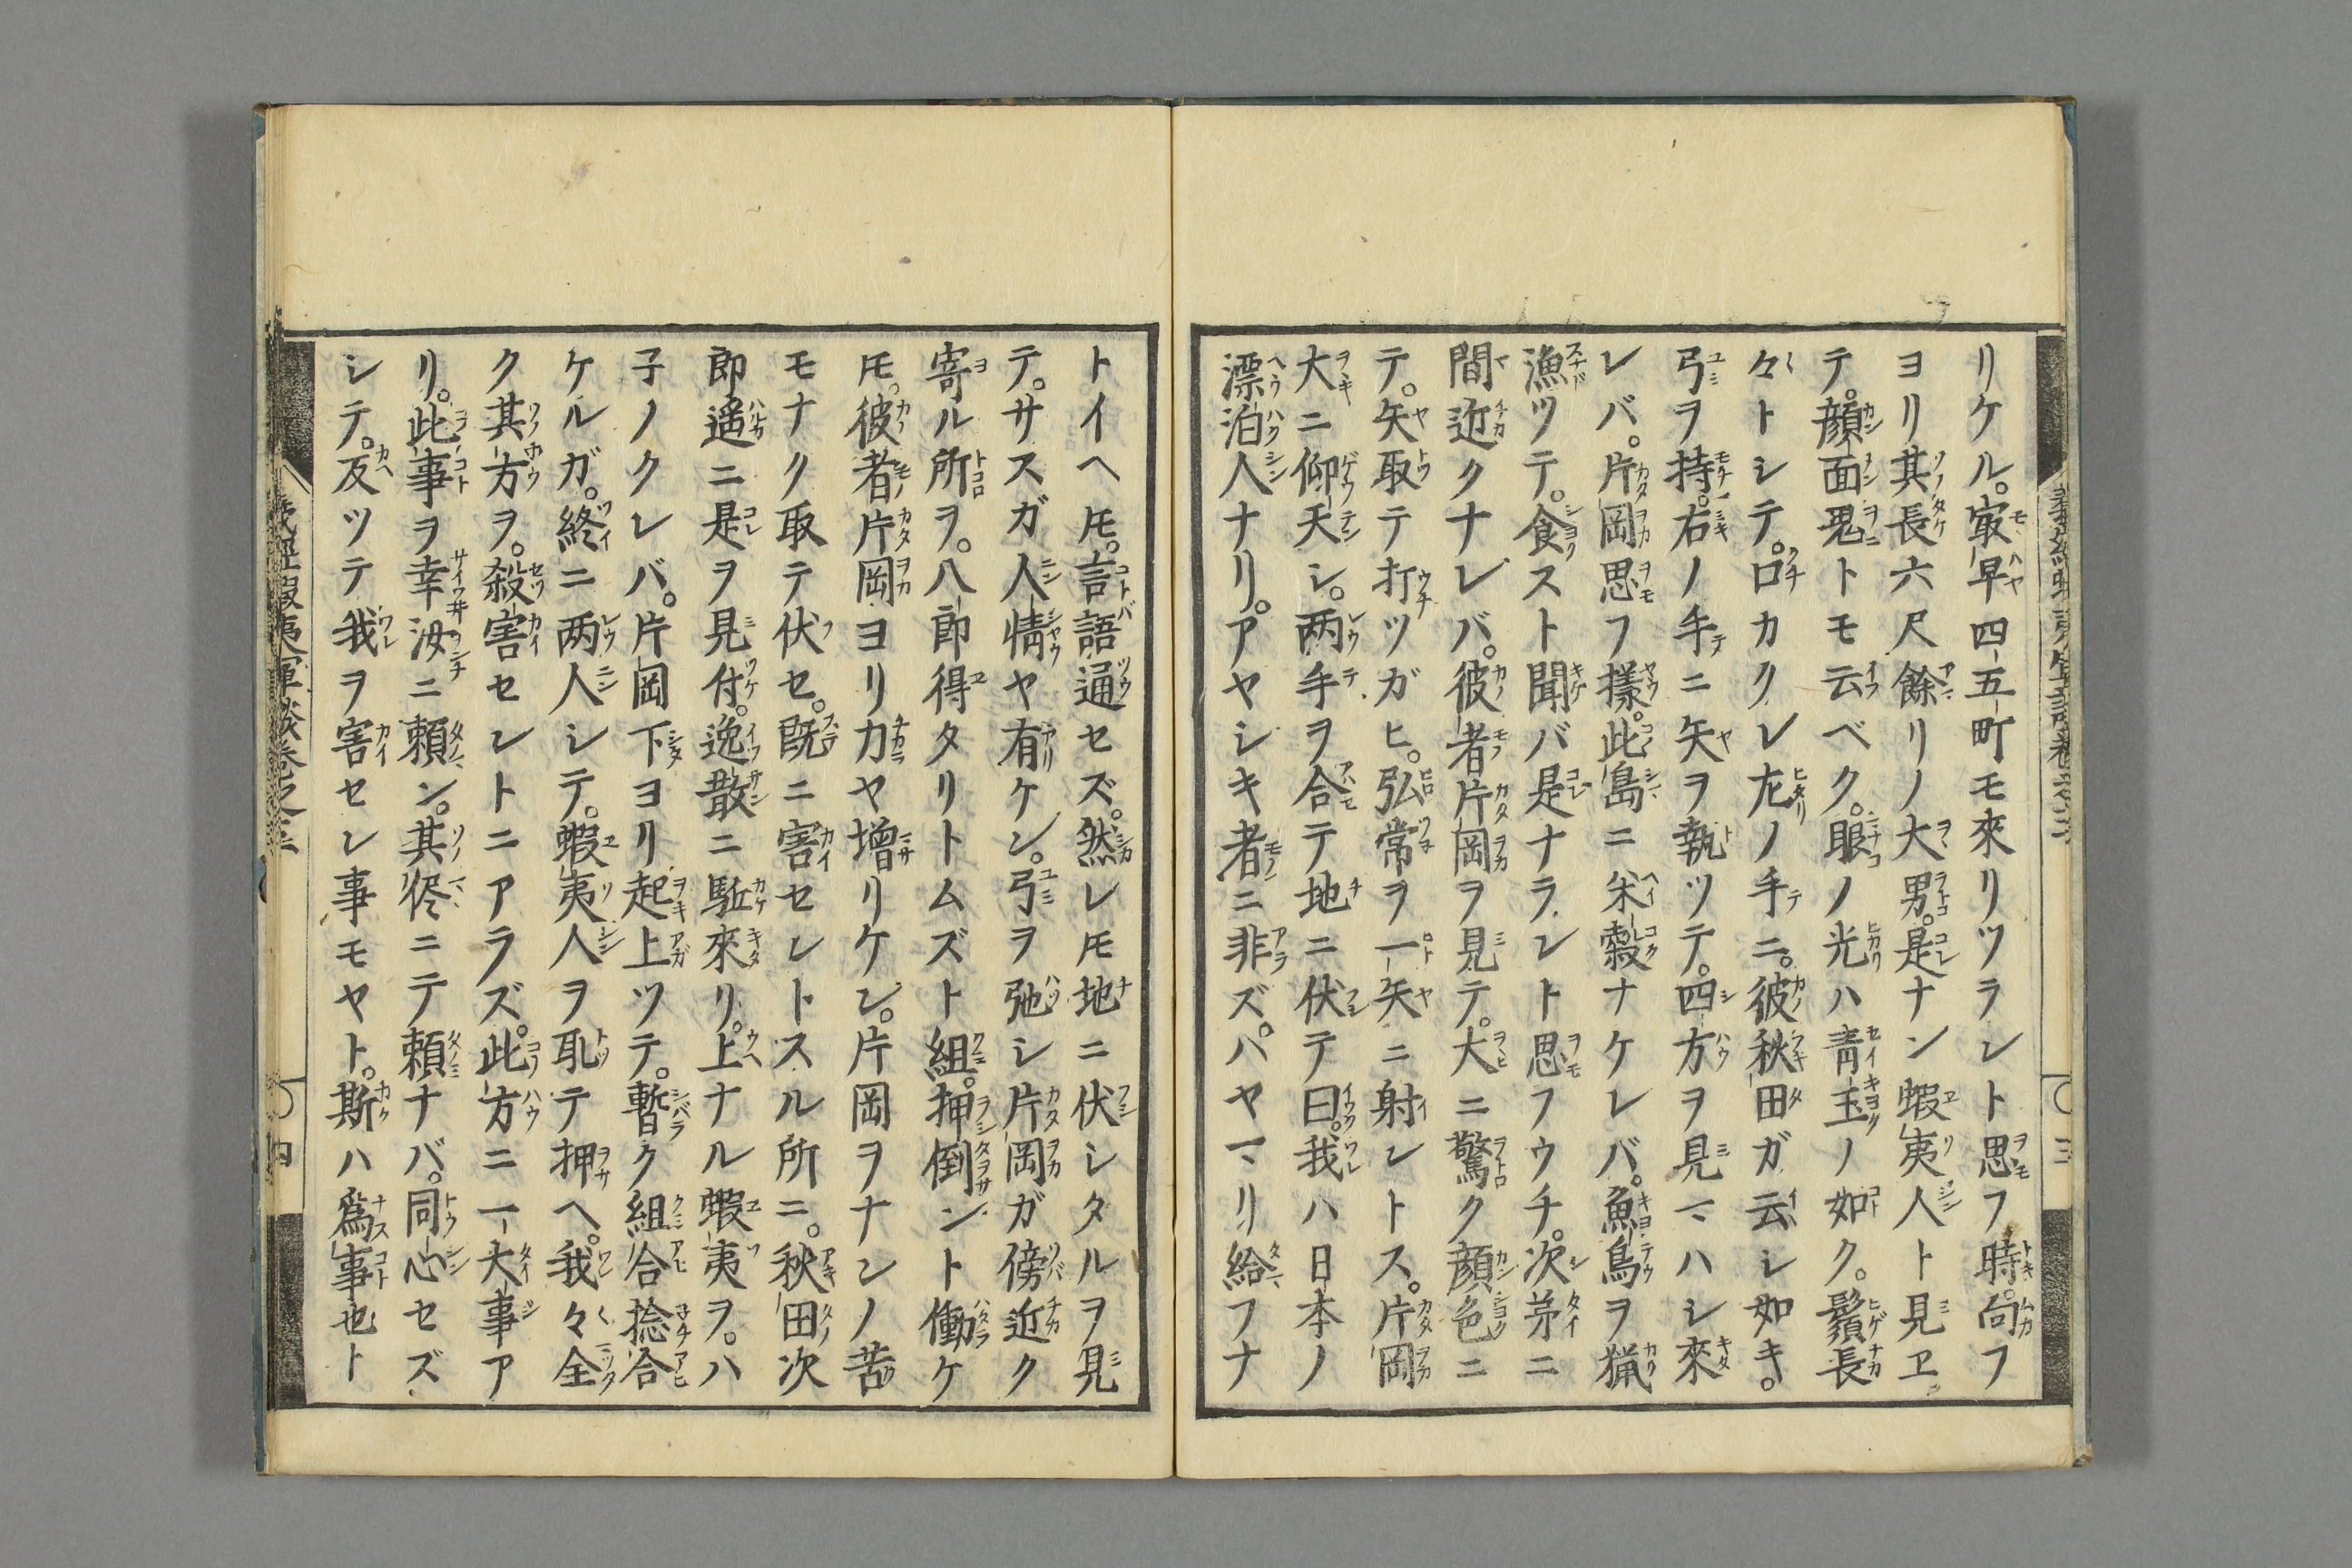 リケル。㝡早四五町モ來リツラント思フ時。向フ
ヨリ其長六尺餘リノ大男。是ナン蝦夷人ト見ヱ
テ。顔面鬼トモ云ベク。眼ノ光ハ青玉ノ如ク。鬚長
々トシテ。口カクレ左ノ手ニ。彼秋田ガ云シ如キ。
弓ヲ持。右ノ手ニ矢ヲ執ツテ。四方ヲ見マハシ來
レバ。片岡思フ樣。此島ニ米穀ナケレバ。魚鳥ヲ猟
漁ツテ。食スト聞バ是ナラント思フウチ。次第ニ
間近クナレバ。彼者片岡ヲ見テ。大ニ驚ク顔色ニ
テ。矢取テ打ツガヒ。弘常ヲ一矢ニ射ントス。片岡
大ニ仰天シ。両手ヲ合テ地ニ伏テ曰。我ハ日本ノ
漂泊人ナリ。アヤシキ者ニ非ズ。パヤマリ給フナ
トイヘ𪜈。言語通セズ。然レ𪜈地ニ伏シタルヲ見
テ。サスガ人情ヤ有ケン。弓ヲ弛シ片岡ガ傍近ク
寄ル所ヲ。八郎得タリトムズト組。押倒ント働ケ
𪜈。彼者片岡ヨリ力ヤ增リケン。片岡ヲナンノ苦
モナク取テ伏セ。既ニ害セントスル所ニ。秋田次
郎遥ニ是ヲ見付。逸散ニ駈來リ。上ナル蝦夷ヲ。ハ
子ノクレバ。片岡下ヨリ起上ツテ。暫ク組合捻合
ケルガ。終ニ両人シテ。蝦夷人ヲ取テ押ヘ。我々全
ク其方ヲ。殺害セントニアラズ。此方ニ一大事ア
リ。此事ヲ幸汝ニ頼ン。其侭ニテ頼ナバ。同心セズ
シテ。反ツテ我ヲ害セン事モヤト。斯ハ爲事也ト
義經蝦夷軍談巻之三
〇三
義經蝦夷軍談巻之三
〇四